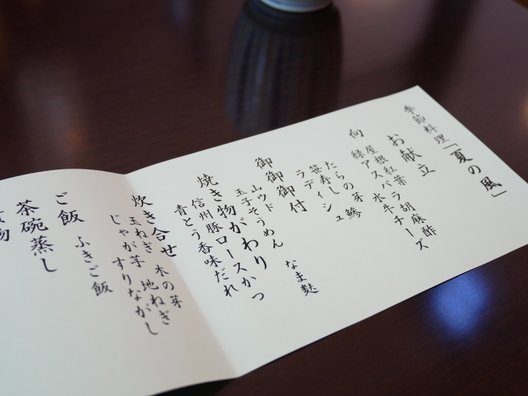 季節料理「夏の風」
お献立
屋根紅葉 胡麻酢
緑アスパラ 水牛チーズ
向
たらの芽 鯵
笹寿し
ラディシュ
御御御付
山ウド なま麩
玉子そうめん
焼き物がわり
信州豚ロースかつ
青とう香味だれ
炊き合せ
木の芽
玉ねぎ 地ねぎ
じゃが芋 すりながし
ご飯
ふきご飯
茶碗蒸し
物